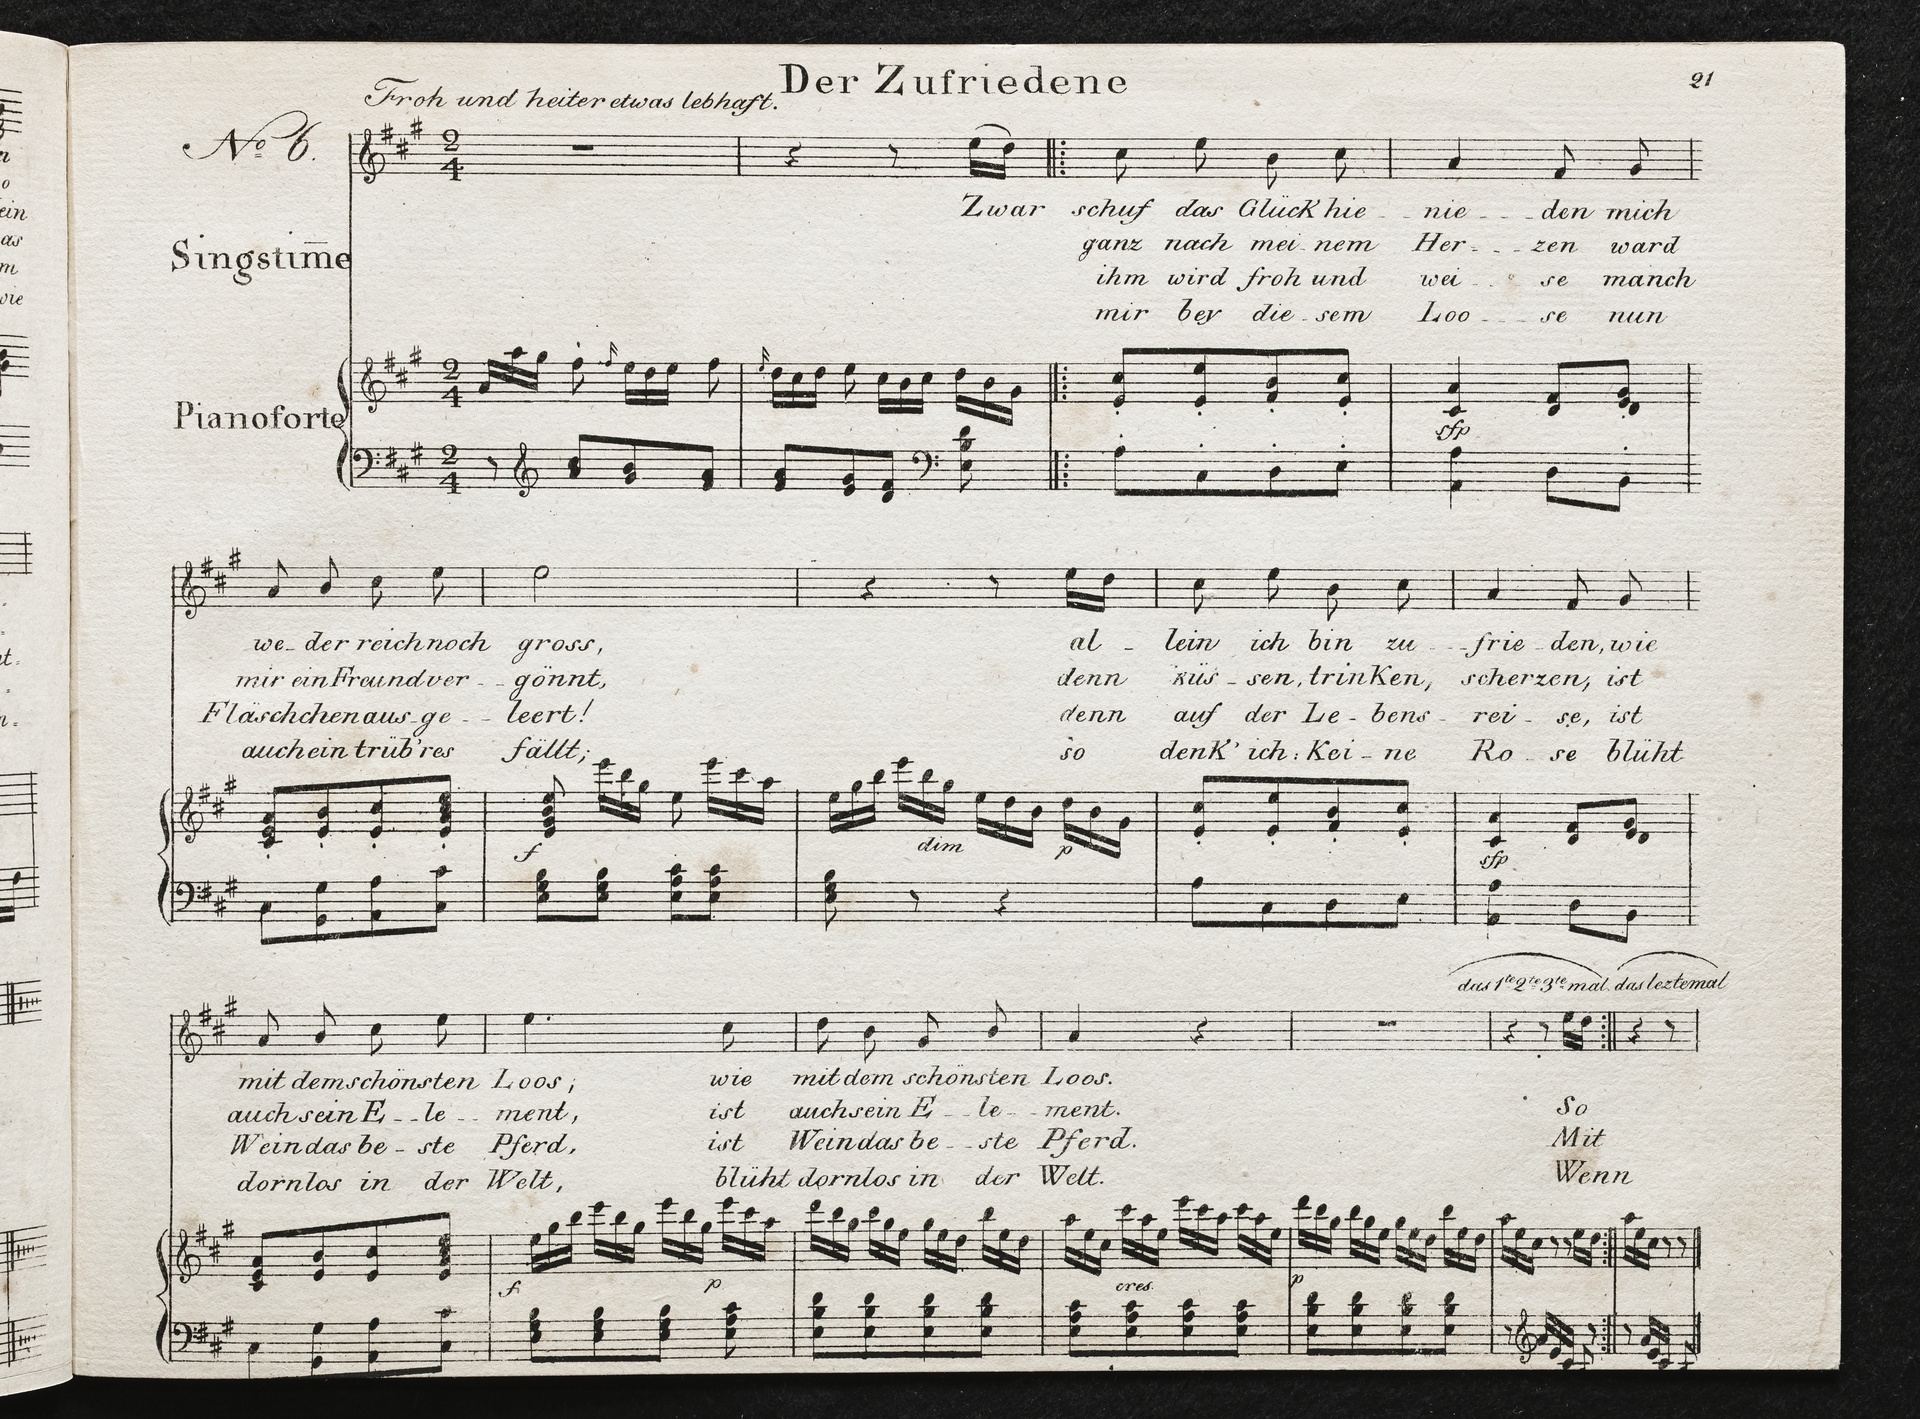 Der Zufriedene
21
Froh und heiter etwas lebhaft.
No 6.
Singstim̅e
Zwar schuf das Glück hie - nie - - - den mich
ganz nach mei - nem Her - - - zen ward
ihm wird froh und wei - - se manch
mir bey die - sem Loo - - - se nun
Pianoforte
sfp
we - der reich noch gross, al - lein ich bin zu - - - frie - den, wie
mir ein Freund ver - - gönnt, denn küs - sen, trinken, scherzen, ist
Fläschchen aus - ge - - leert! denn auf der Le - bens - rei - se, ist
auch ein trüb'res fällt; so denk' ich: Kei - ne Ro - se blüht
f dim p sfp
das 1te 2te 3te mal. das leztemal
mit dem schönsten Loos; wie mit dem schönsten Loos.
auch sein E - - le - - ment, ist auch sein E - - le - - ment. So
Wein das be - ste Pferd, ist Wein das be - - ste Pferd. Mit
dornlos in der Welt, blüht dornlos in der Welt. Wenn
f p cres. p